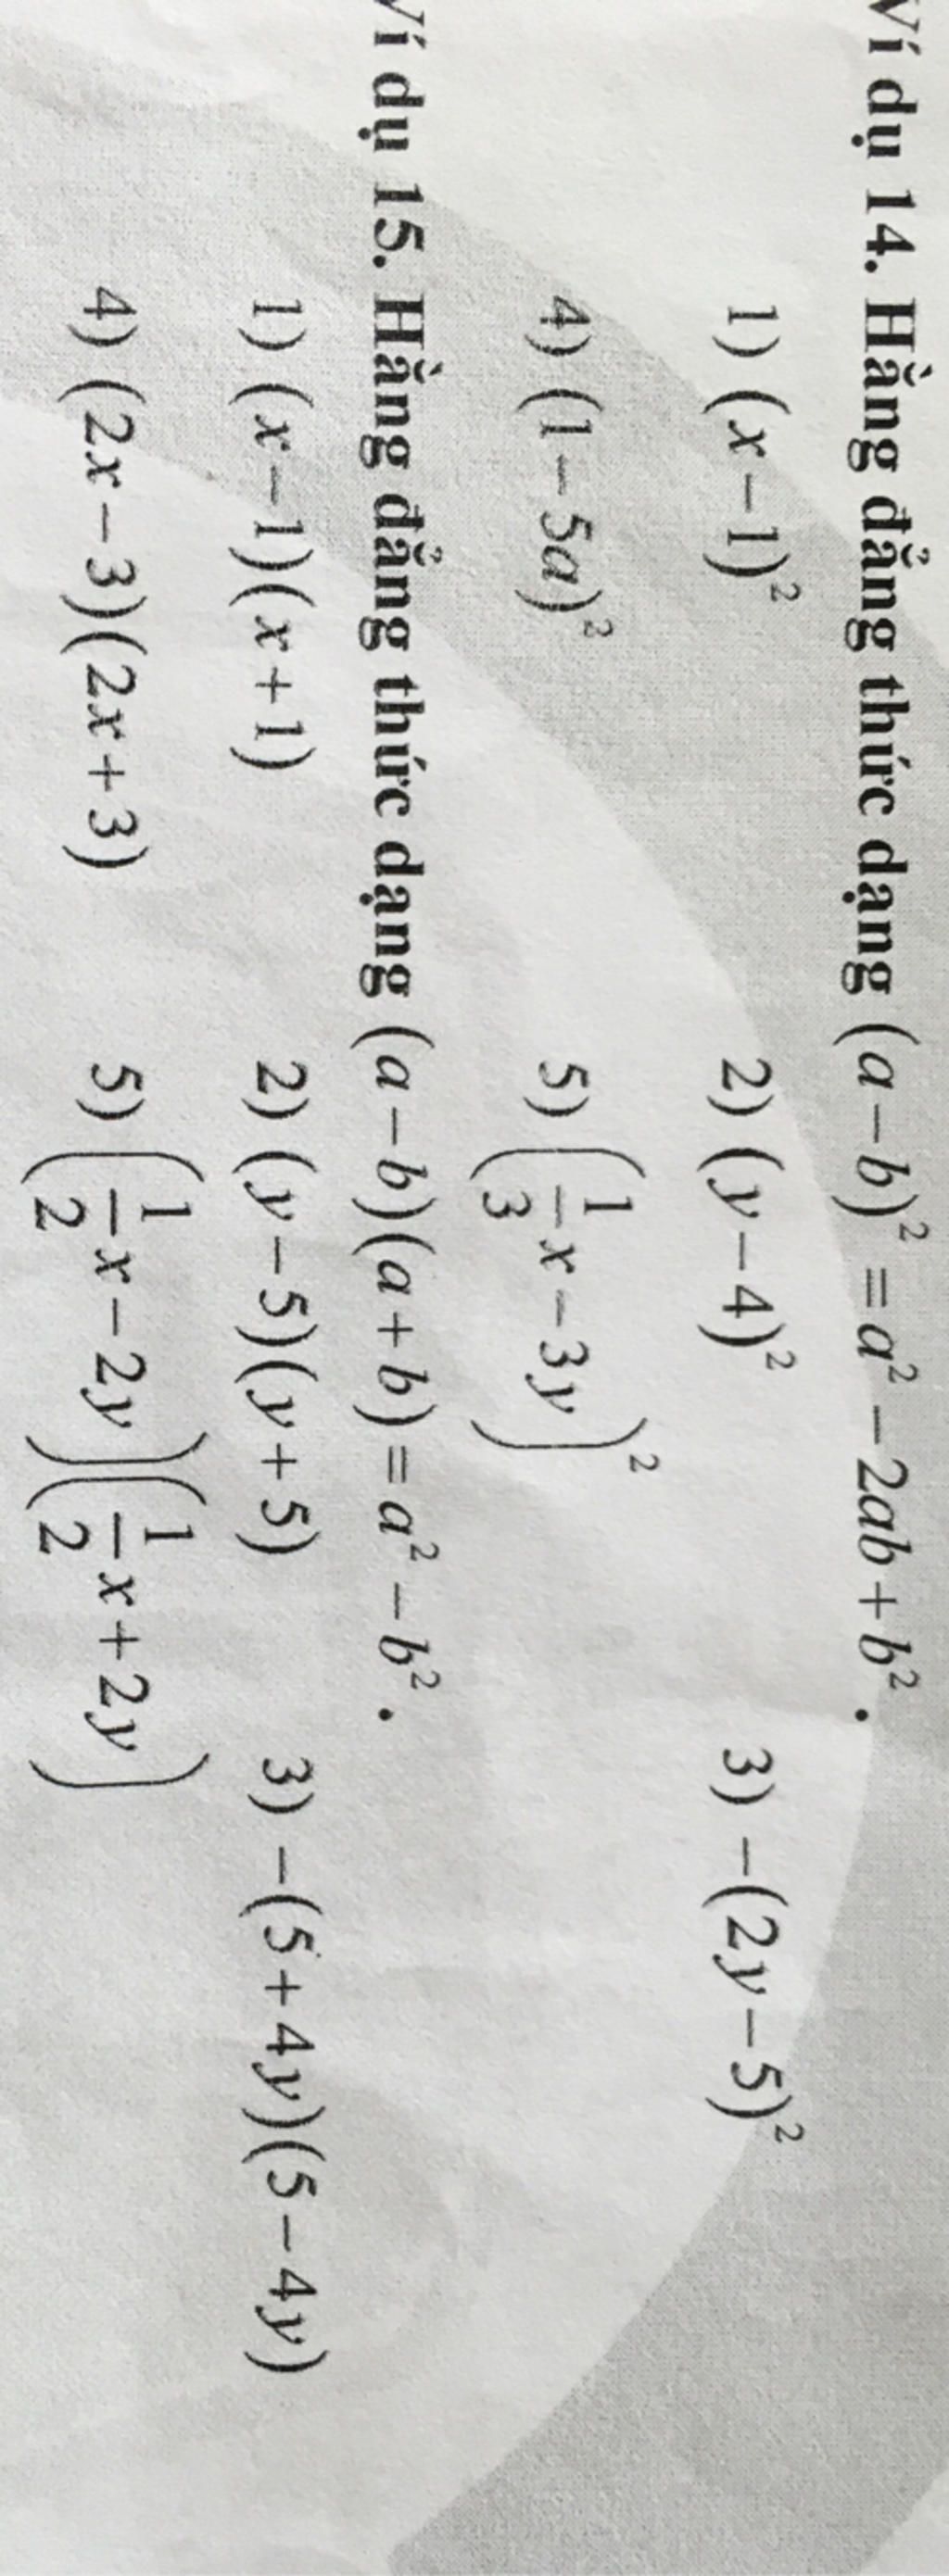 Ví dụ 14. Hằng đẳng thức dạng (a−b)² = a² − 2ab + b².
1) (x−1)² 2) (y−4)² 3) −(2y−5)²
4) (1−5a)² 5) (1/3 x−3y)²
Ví dụ 15. Hằng đẳng thức dạng (a−b)(a+b) = a² − b².
1) (x−1)(x+1) 2) (y−5)(y+5) 3) −(5+4y)(5−4y)
4) (2x−3)(2x+3) 5) (1/2 x−2y)(1/2 x+2y)